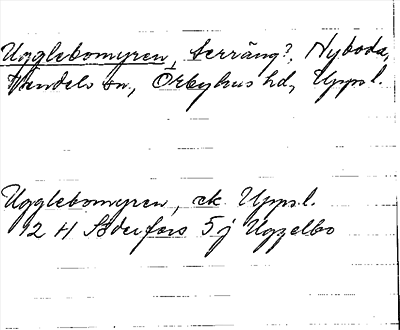 Ugglebomyren, terräng?, Nyboda,
Vendels sn, Örbyhus hd, Uppsl.
Ugglebomyren, ek. Uppsl.
12 H Söderfors 5 j Ugzelbo